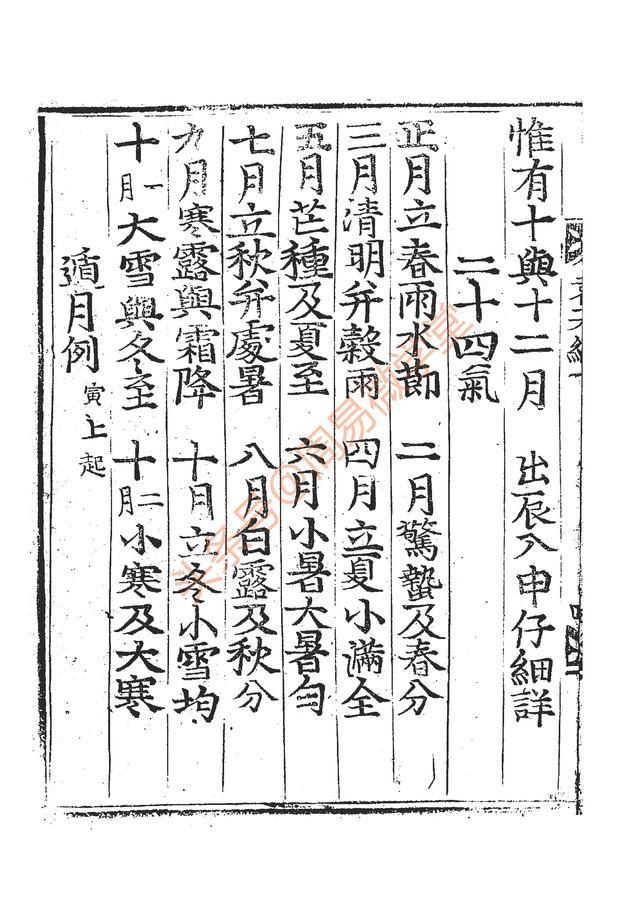 惟有十與十二月　出辰入申仔細詳
二十四氣
正月立春雨水節　二月驚蟄及春分
三月清明并穀雨　四月立夏小滿全
五月芒種及夏至　六月小暑大暑勻
七月立秋并處暑　八月白露及秋分
九月寒露與霜降　十月立冬小雪均
十一月大雪與冬至　十二月小寒及大寒
遁月例 寅上起
头条号@周易微学堂